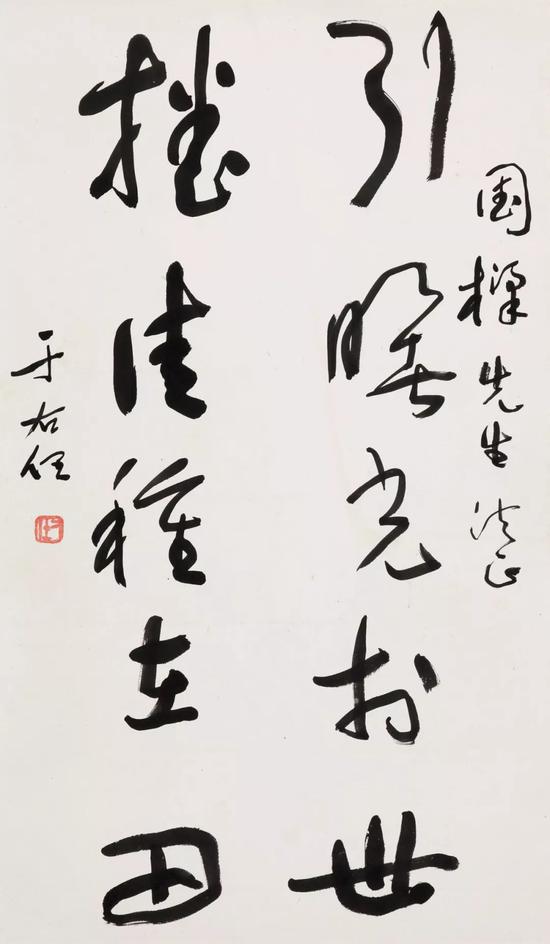 國樑先生法正
引曙光於世
播佳種在田
于右任